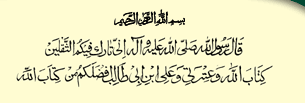 بسم الله الرحمن الرحیم
قال رسول الله صلی الله علیه و آله انی تارک فیکم الثقلین
کتاب الله و عترتی و علی ابن ابی طالب افضل لکم من کتاب الله